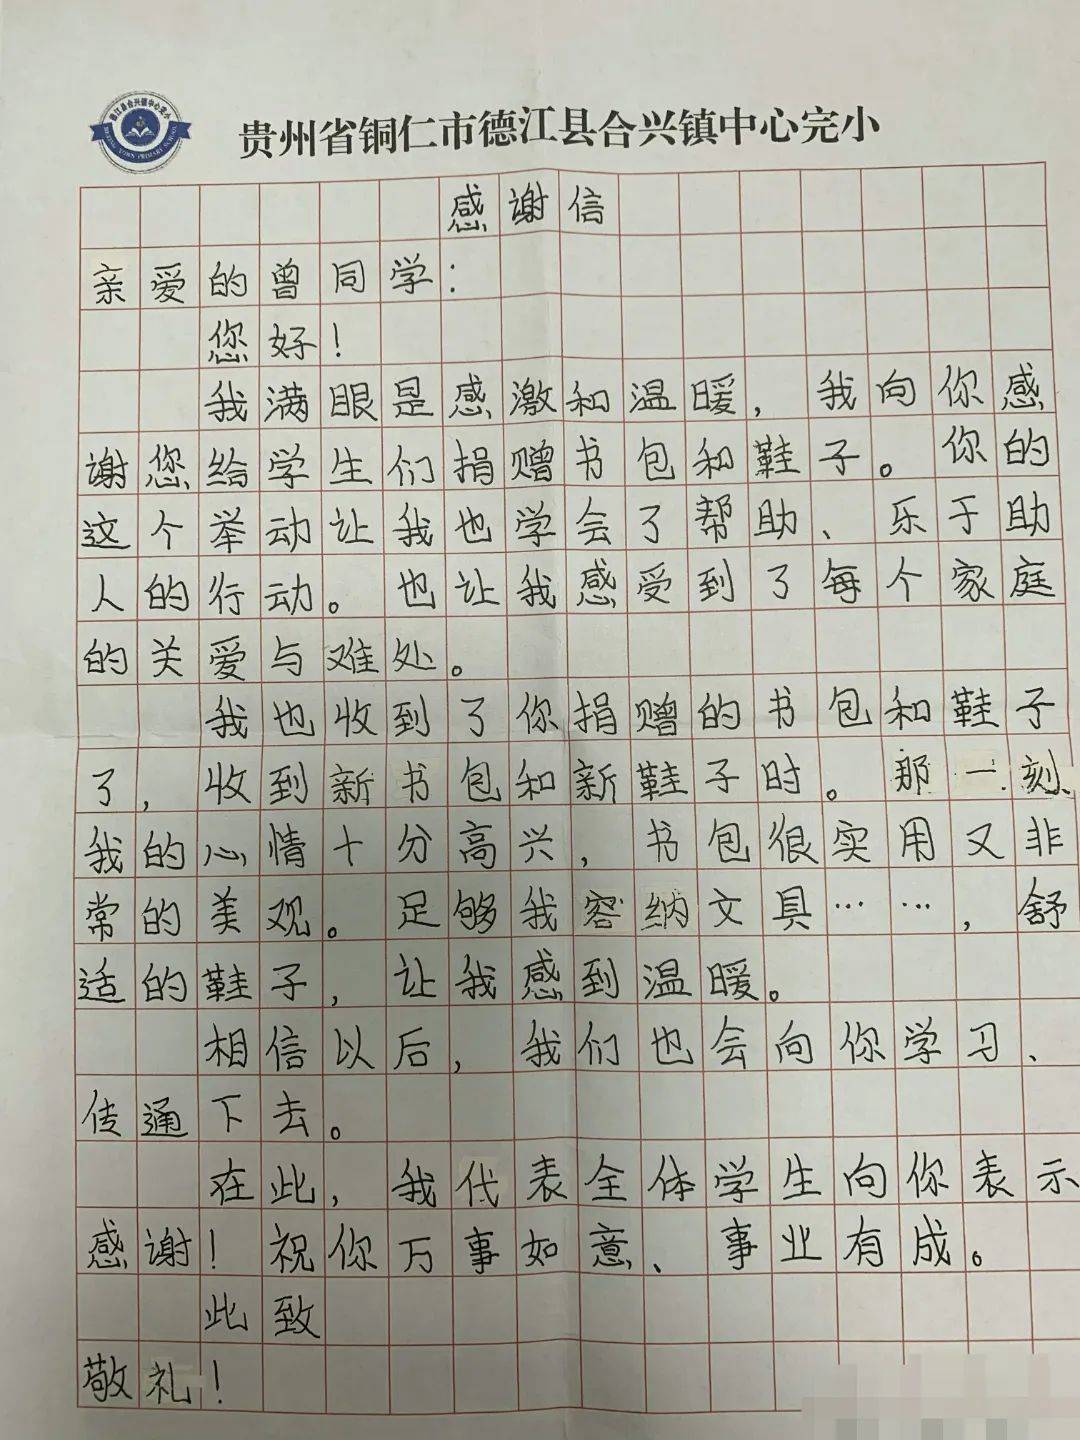 贵州省铜仁市德江县合兴镇中心完小
感谢信
亲爱的曾同学：
您好！
我满眼是感激和温暖，我向你感
谢您给学生们捐赠书包和鞋子。你的
这个举动让我也学会了帮助、乐于助
人的行动。也让我感受到了每个家庭
的关爱与难处。
我也收到了你捐赠的书包和鞋子
了，收到新书包和新鞋子时。那一刻、
我的心情十分高兴，书包很实用又非
常的美观。足够我容纳文具……，舒
适的鞋子，让我感到温暖。
相信以后，我们也会向你学习、
传通下去。
在此，我代表全体学生向你表示
感谢！祝你万事如意、事业有成。
此致
敬礼！